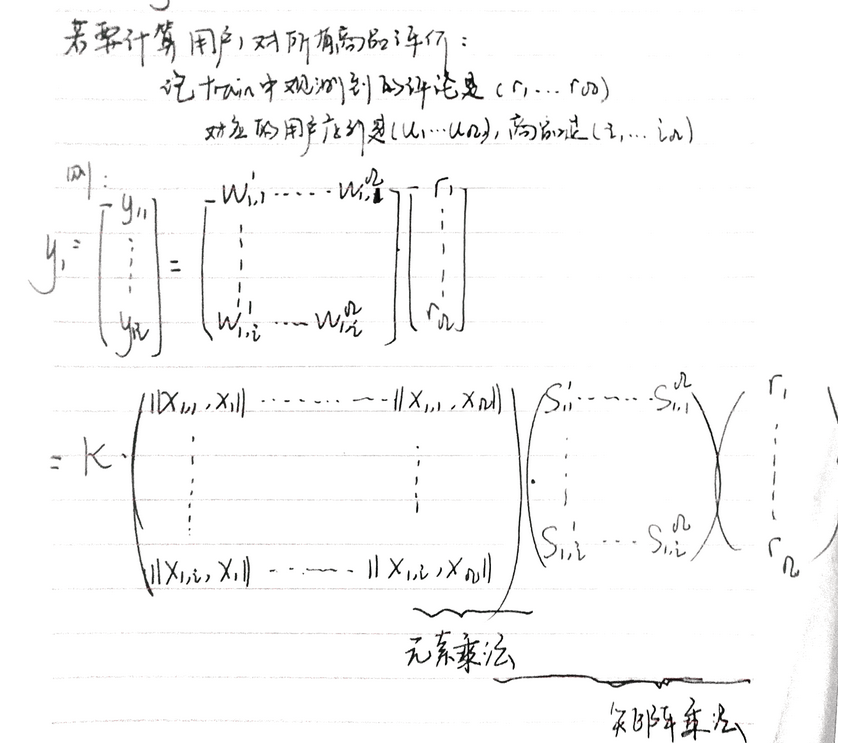 若要计算用户1对所有商品评价:
记train中观测到的评论是(r₁...r_Ω)
对应的用户序列是(u₁...u_Ω),商品是(i₁...i_Ω)
则:
y₁ = [y₁,₁ ⋮ y₁,i] = [W¹₁,₁ ...... W^Ω₁,₁ ⋮ W¹₁,i ...... W^Ω₁,i] · [r₁ ⋮ r_Ω]
= K · (||X₁,₁, X₁|| ...... ||X₁,₁, X_Ω|| ⋮ ⋮ ||X₁,i, X₁|| ...... ||X₁,i, X_Ω||) · (S¹₁,₁ ...... S^Ω₁,₁ ⋮ S¹₁,i ... S^Ω₁,i) (r₁ ⋮ r_Ω)
元素乘法
矩阵乘法